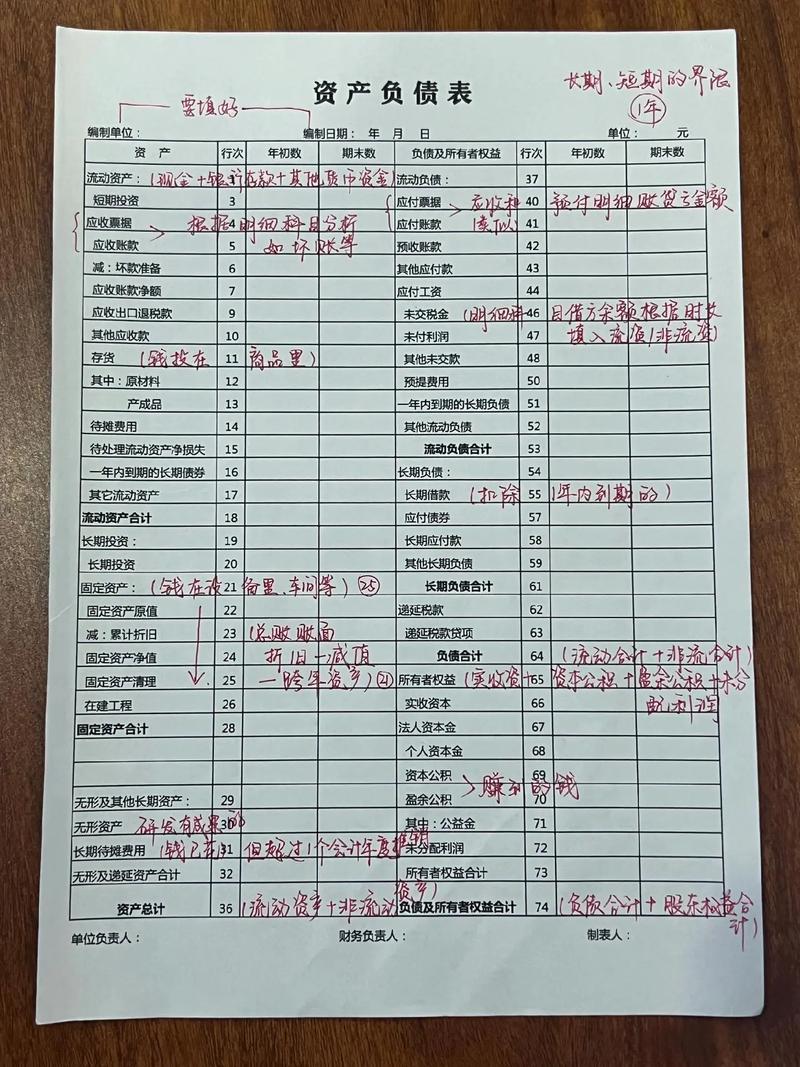 资产负债表
长期、短期的界限
1年
要填好
编制单位： 编制日期： 年 月 日 单位： 元
资 产 行次 年初数 期末数 负债及所有者权益 行次 年初数 期末数
流动资产： (现金+银行存款+其他货币资金) 1 流动负债： 37
短期投资 3 应付票据 应收科 40 预付明细账贷方金额
应收票据 4 根据明细科目分析 应付账款 类似 41
应收账款 5 如坏账等 预收账款 42
减：坏款准备 6 其他应付款 43
应收账款净额 7 应付工资 44
应收出口退税款 9 未交税金 (明细科 46 目借方余额根据时长
其他应收款 10 未付利润 47 填入流资/非流资)
存货 (钱投在 11 商品里) 其他未交款 48
其中：原材料 12 预提费用 50
产成品 13 一年内到期的长期负债 51
待摊费用 14 其他流动负债 52
待处理流动资产净损失 15 流动负债合计 53
一年内到期的长期债券 16 长期负债： 54
其它流动资产 17 长期借款 (扣除 55 1年内到期的)
流动资产合计 18 应付债券 57
长期投资： 19 长期应付款 58
长期投资 20 其他长期负债 59
固定资产： (钱在设 21 备里、车间等) 25 长期负债合计 61
固定资产原值 22 递延税款 62
减：累计折旧 23 (总账账面 递延税款贷项 63
固定资产净值 24 折旧-减值 负债合计 64 (流动合计+非流合计)
固定资产清理 25 一跨年资产) 21 所有者权益 (实收资+ 65 资本公积+盈余公积+未分
在建工程 26 实收资本 66 配利润
固定资产合计 28 法人资本金 67
个人资本金 68
资本公积 69 赚到的钱
无形及其他长期资产： 29 盈余公积 70
无形资产 研发有成果的 30 其中：公益金 71
长期待摊费用 (钱已花 31 但超过1个会计年度摊销 未分配利润 72
无形及递延资产合计 32 所有者权益合计 73
资产总计 36 (流动资产+非流动资产) 负债及所有者权益合计 74 (负债合计+股东权益合计)
单位负责人： 财务负责人： 制表人：